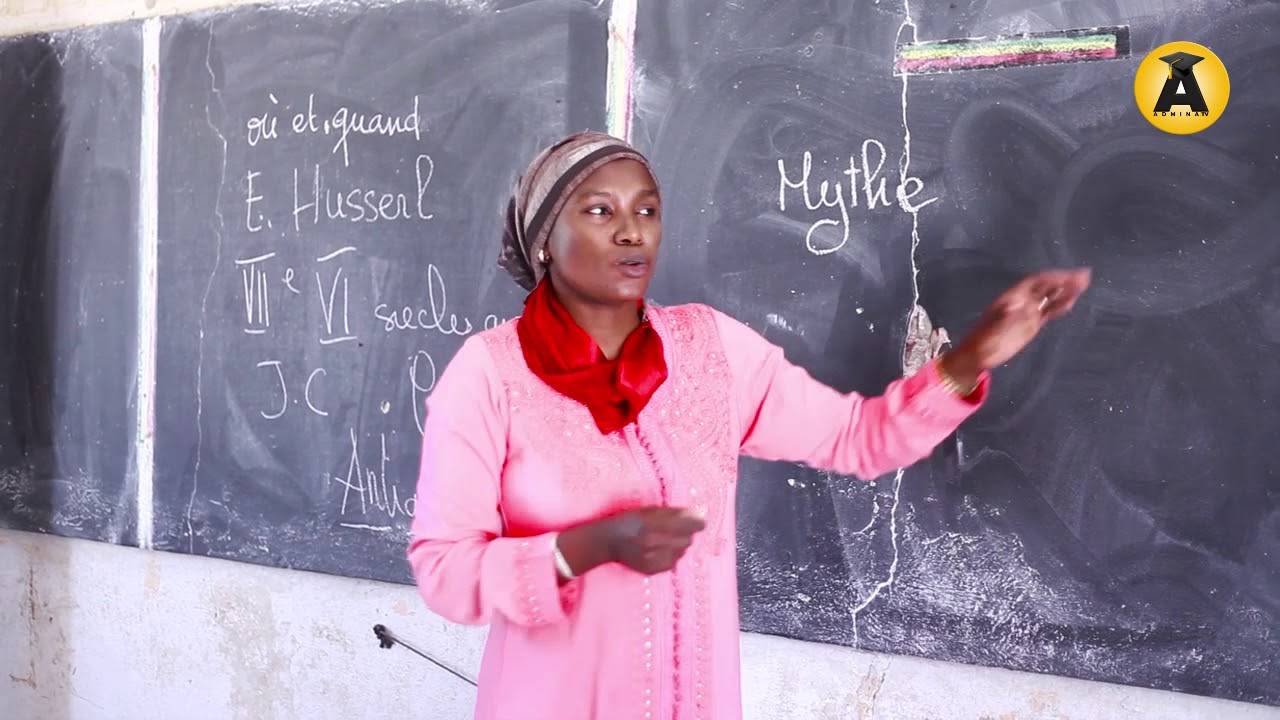 où et quand
E. Husserl
VIIe VI siecles
J.C
Mythe
ADMINATV